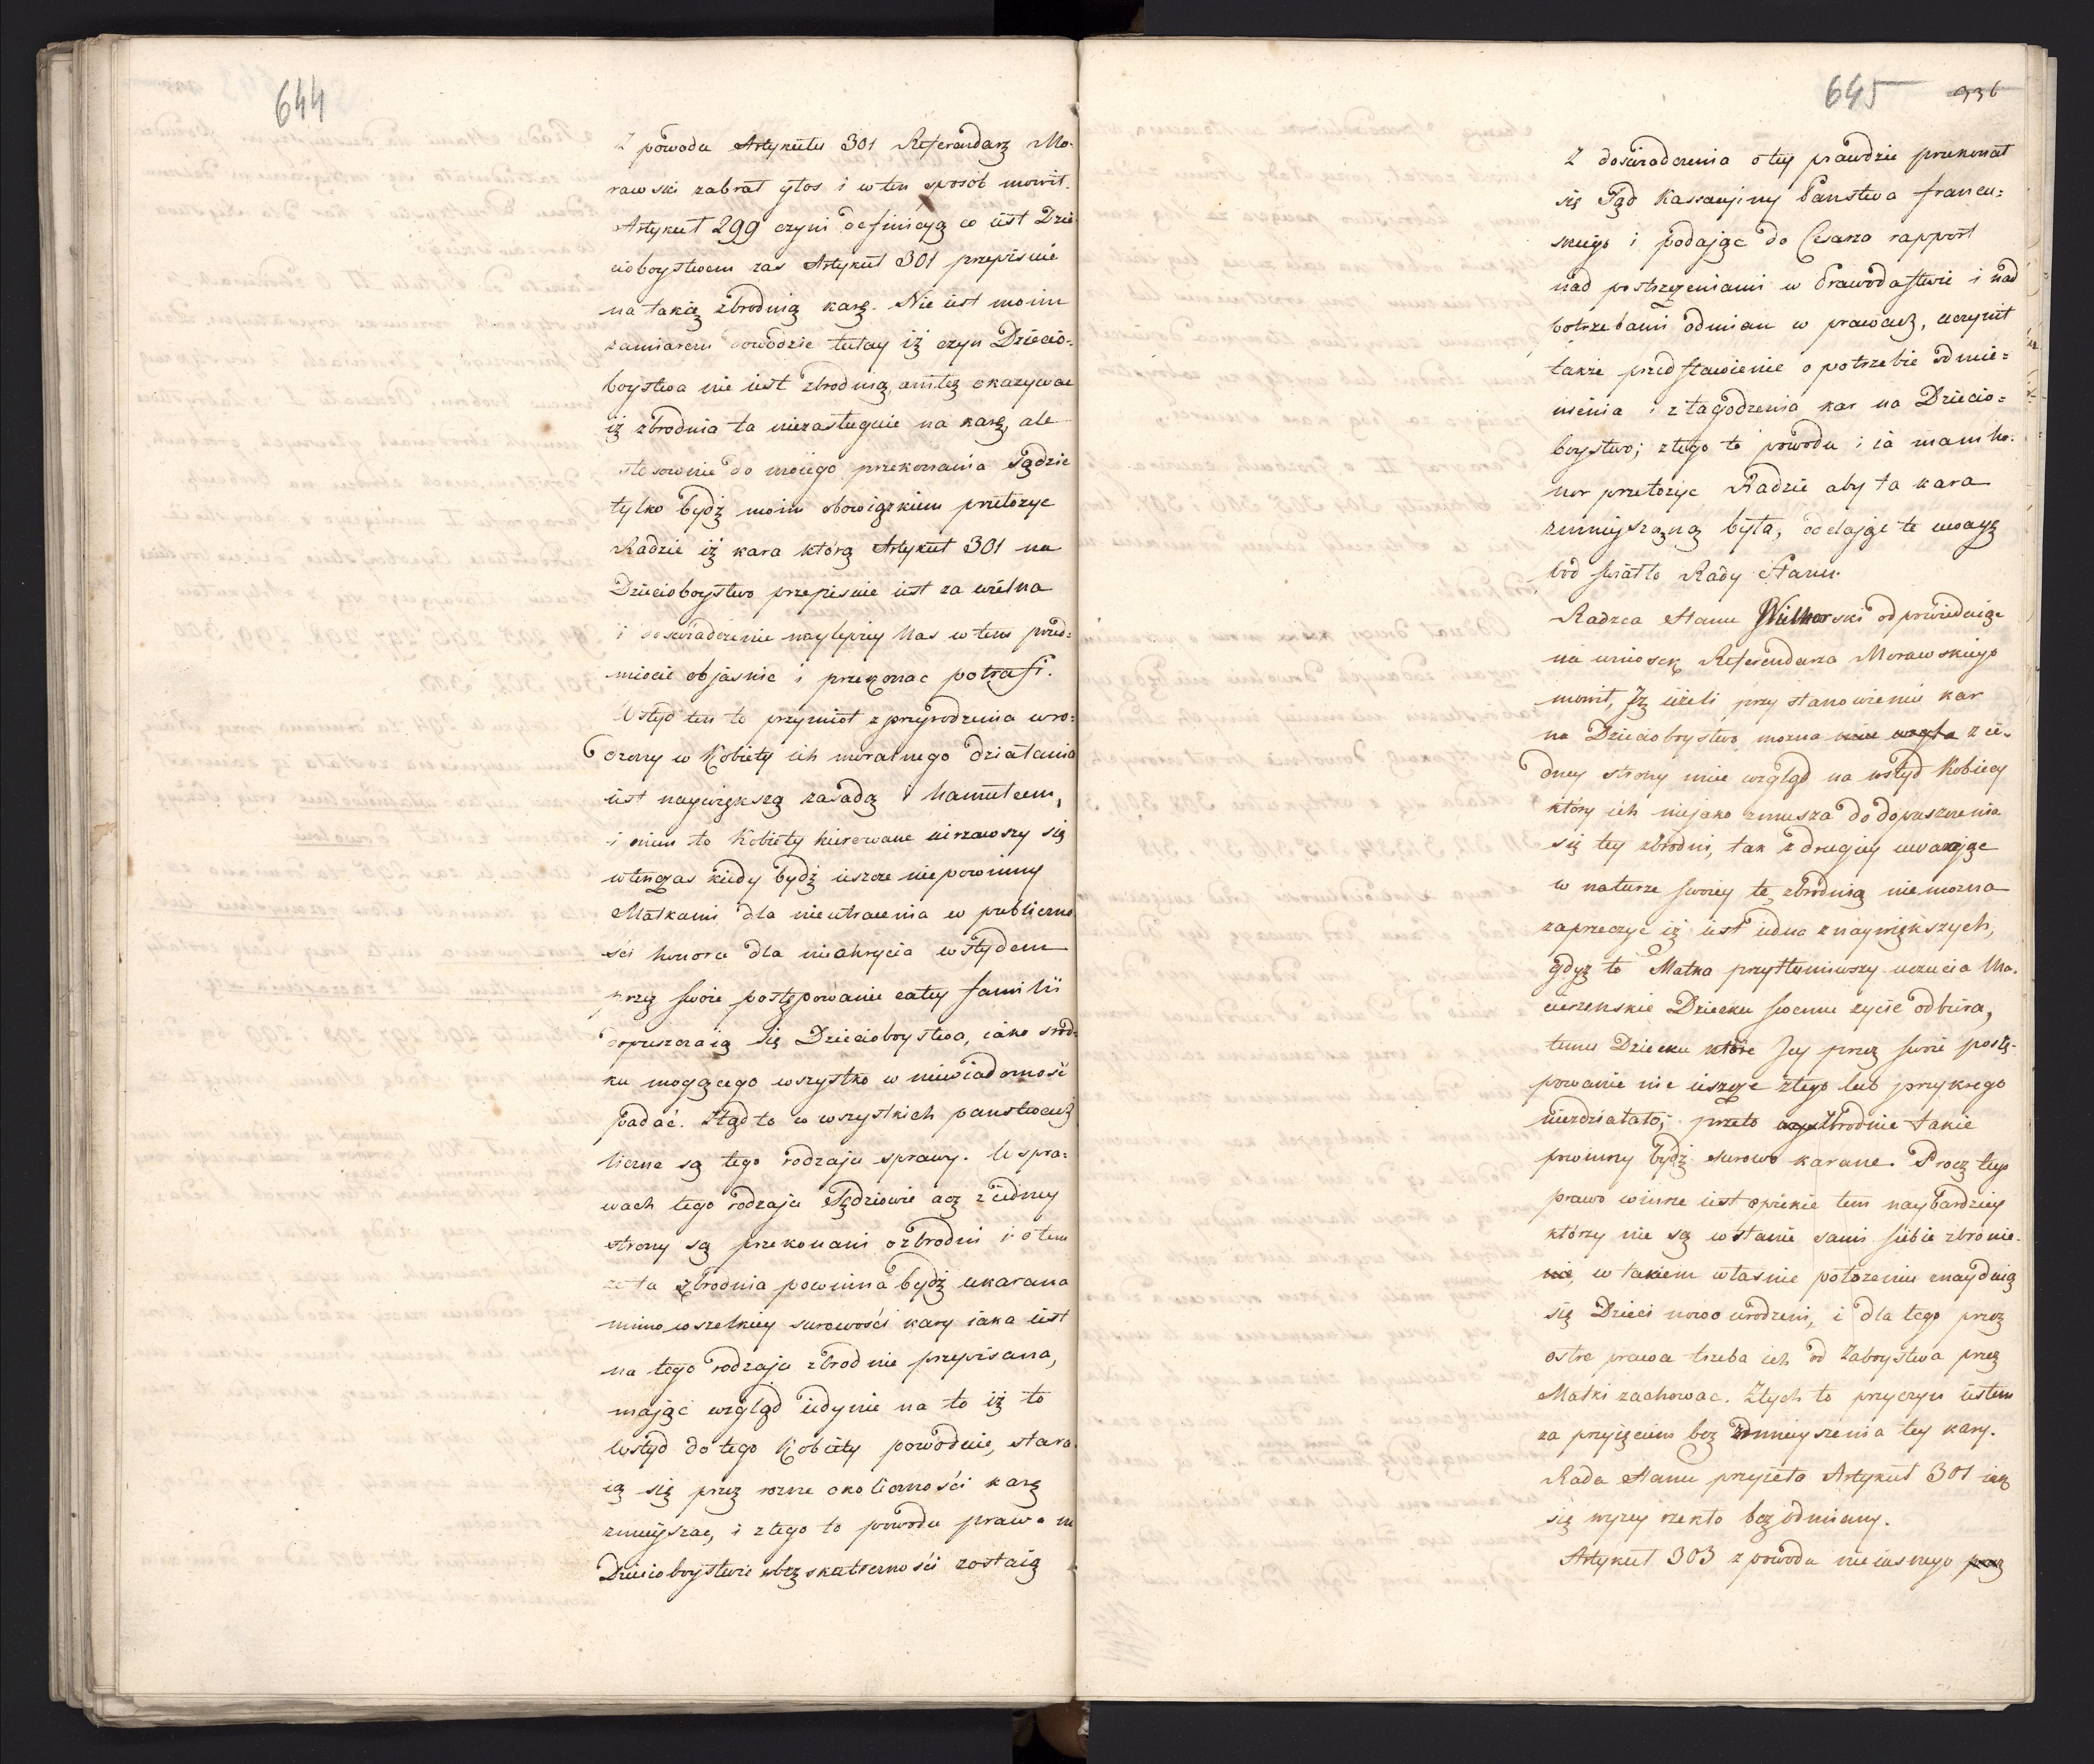 644
Z powodu Artykułu 301 Referendarz Mo-
rawski zabrał głos i w ten sposób mowił.
Artykuł 299 czyni definicyą co iest Dzie-
cioboystwem zas Artykuł 301 przepisuie
na takię zbrodnią karę. Nie iest moim
zamiarem dowodzić tutay iż czyn Dziecio-
boystwa nie iest zbrodnią, ani też okazywac
iż zbrodnia ta niezasługuie na karę, ale
stosownie do moiego przekonania Sądzę
tylko bydź moim obowiązkiem przełożyc
Radzie iż kara którą Artykuł 301 na
Dziecioboystwo przepisuie iest za wielka
i doświadczenie naylepiey Nas w tem przed-
miocie objasnic i przekonac potrafi.
Wstyd ten to przymiot z przyrodzenia wro-
dzony w Kobiety ich moralnego działania
iest naywiększą zasadą i hamulcem,
i nim to Kobiety kierowane uirzawszy się
wtenczas kiedy bydź ieszcze niepowinny
Matkami dla nieutracenia w publiczno-
ści honoru dla nieokrycia wstydem
przez swoie postępowanie całey familii
dopuszczaią się Dziecioboystwa, iako srod-
ku mogącego wszystko w niewiadomość
padać. Stąd to w wszystkich panstwach
liczne są tego rodzaju sprawy. W spra-
wach tego rodzaju Sędziowie acz z iedney
strony są przekonani o zbrodni i o tem
że ta zbrodnia powinna bydź ukarana
mimo wszelkiey surowości kary iaka iest
na tego rodzaju zbrodnie przepisana,
mając wzgląd iedynie na to iż to
wstyd do tego Kobiety powoduie, stara-
ią się przez rozne okoliczności karę
zmnieyszac, i z tego to powodu prawa na
Dziecioboystwo bez skuteczności zostaią
645 336
Z doświadczenia o tey prawdzie przekonał
się Sąd Kassacyiny Panstwa francu-
skiego i podając do Cesarza rapport
nad postrzeżeniami w Prawodastwie i nad
potrzebami odmian w prawach, uczynił
także przedstawienie o potrzebie odmie-
nienia i złagodzenia kar na Dziecio-
boystwo; z tego to powodu i ia mam ho-
nor przełożyc Radzie aby ta kara
zmnieyszoną była, oddając te uwagę
pod swiatło Rady Stanu.
Radzca Stanu Wielhorski odpowiedaiąc
na wniosek Referendarza Morawskiego
mowił, Iż ieżeli przy stanowieniu kar
na Dziecioboystwo można z ie-
dney strony miec wzgląd na wstyd Kobiecy
który ich niejako zmusza do dopuszczenia
się tey zbrodni, tak z drugiey uważając
w naturze swoiey te zbrodnią niemozna
zaprzeczyć iż iest iedna z naywiększych,
gdyż to Matka przytłumiwszy uczucia Ma-
cierzenskie Dziecku swoemu zycie odbiera,
temu Dziecku które Jey przez swoie postę-
powanie nic ieszcze złego lub przykrego
niezdziałało; przeto zbrodnie takie
powinny bydź surowo karane. Procz tego
prawo winne iest opiekie tem naybardziey
którzy nie są w stanie sami siebie zbronic.
w takiem własnie położeniu znayduią
się Dzieci nowo urodzeni, i dla tego przez
ostre prawa trzeba ich od Zaboystwa przez
Matki zachowac. Z tych to przyczyn iestem
za przyięciem bez zmnieyszenia tey kary.
Rada Stanu przyieła Artykuł 301 iak
się wyzey rzekło bez odmiany.
Artykuł 303 z powodu nieiasnego